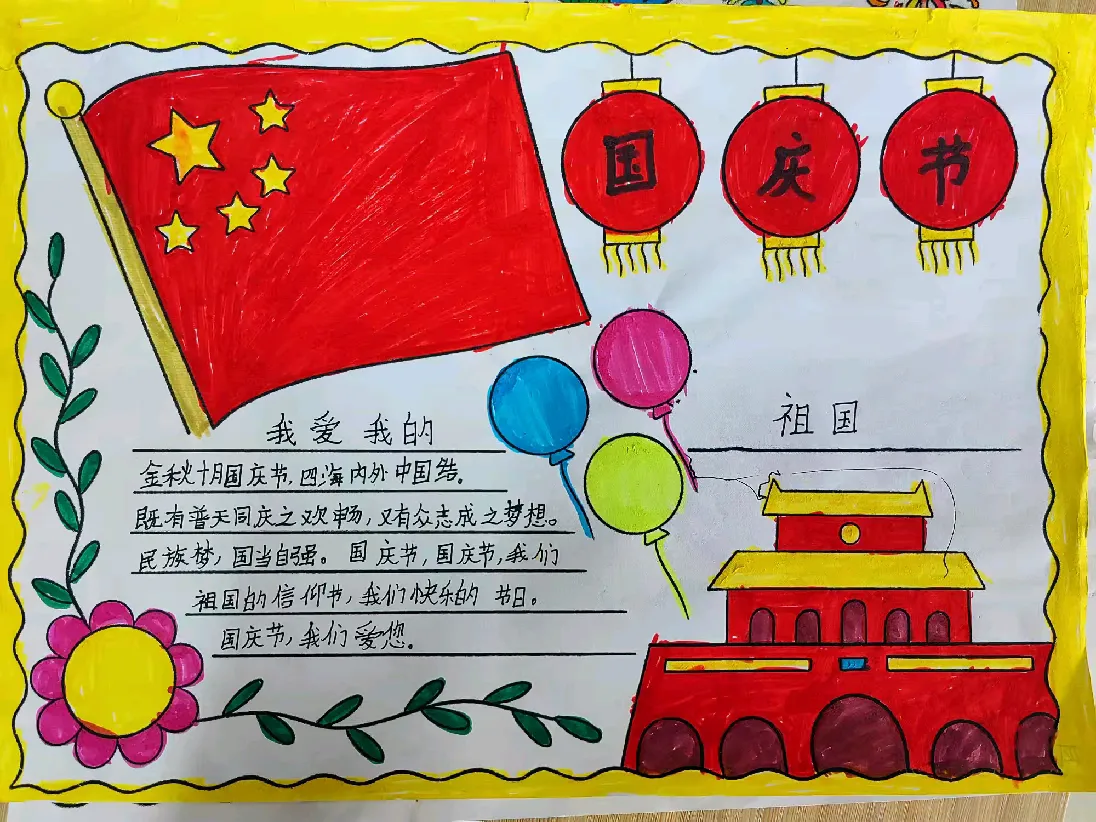 国庆节
我爱我的祖国
金秋十月国庆节,四海内外中国结。
既有普天同庆之欢畅,又有众志成之梦想。
民族梦,国当自强。国庆节,国庆节,我们
祖国的信仰节,我们快乐的节日。
国庆节,我们爱您。